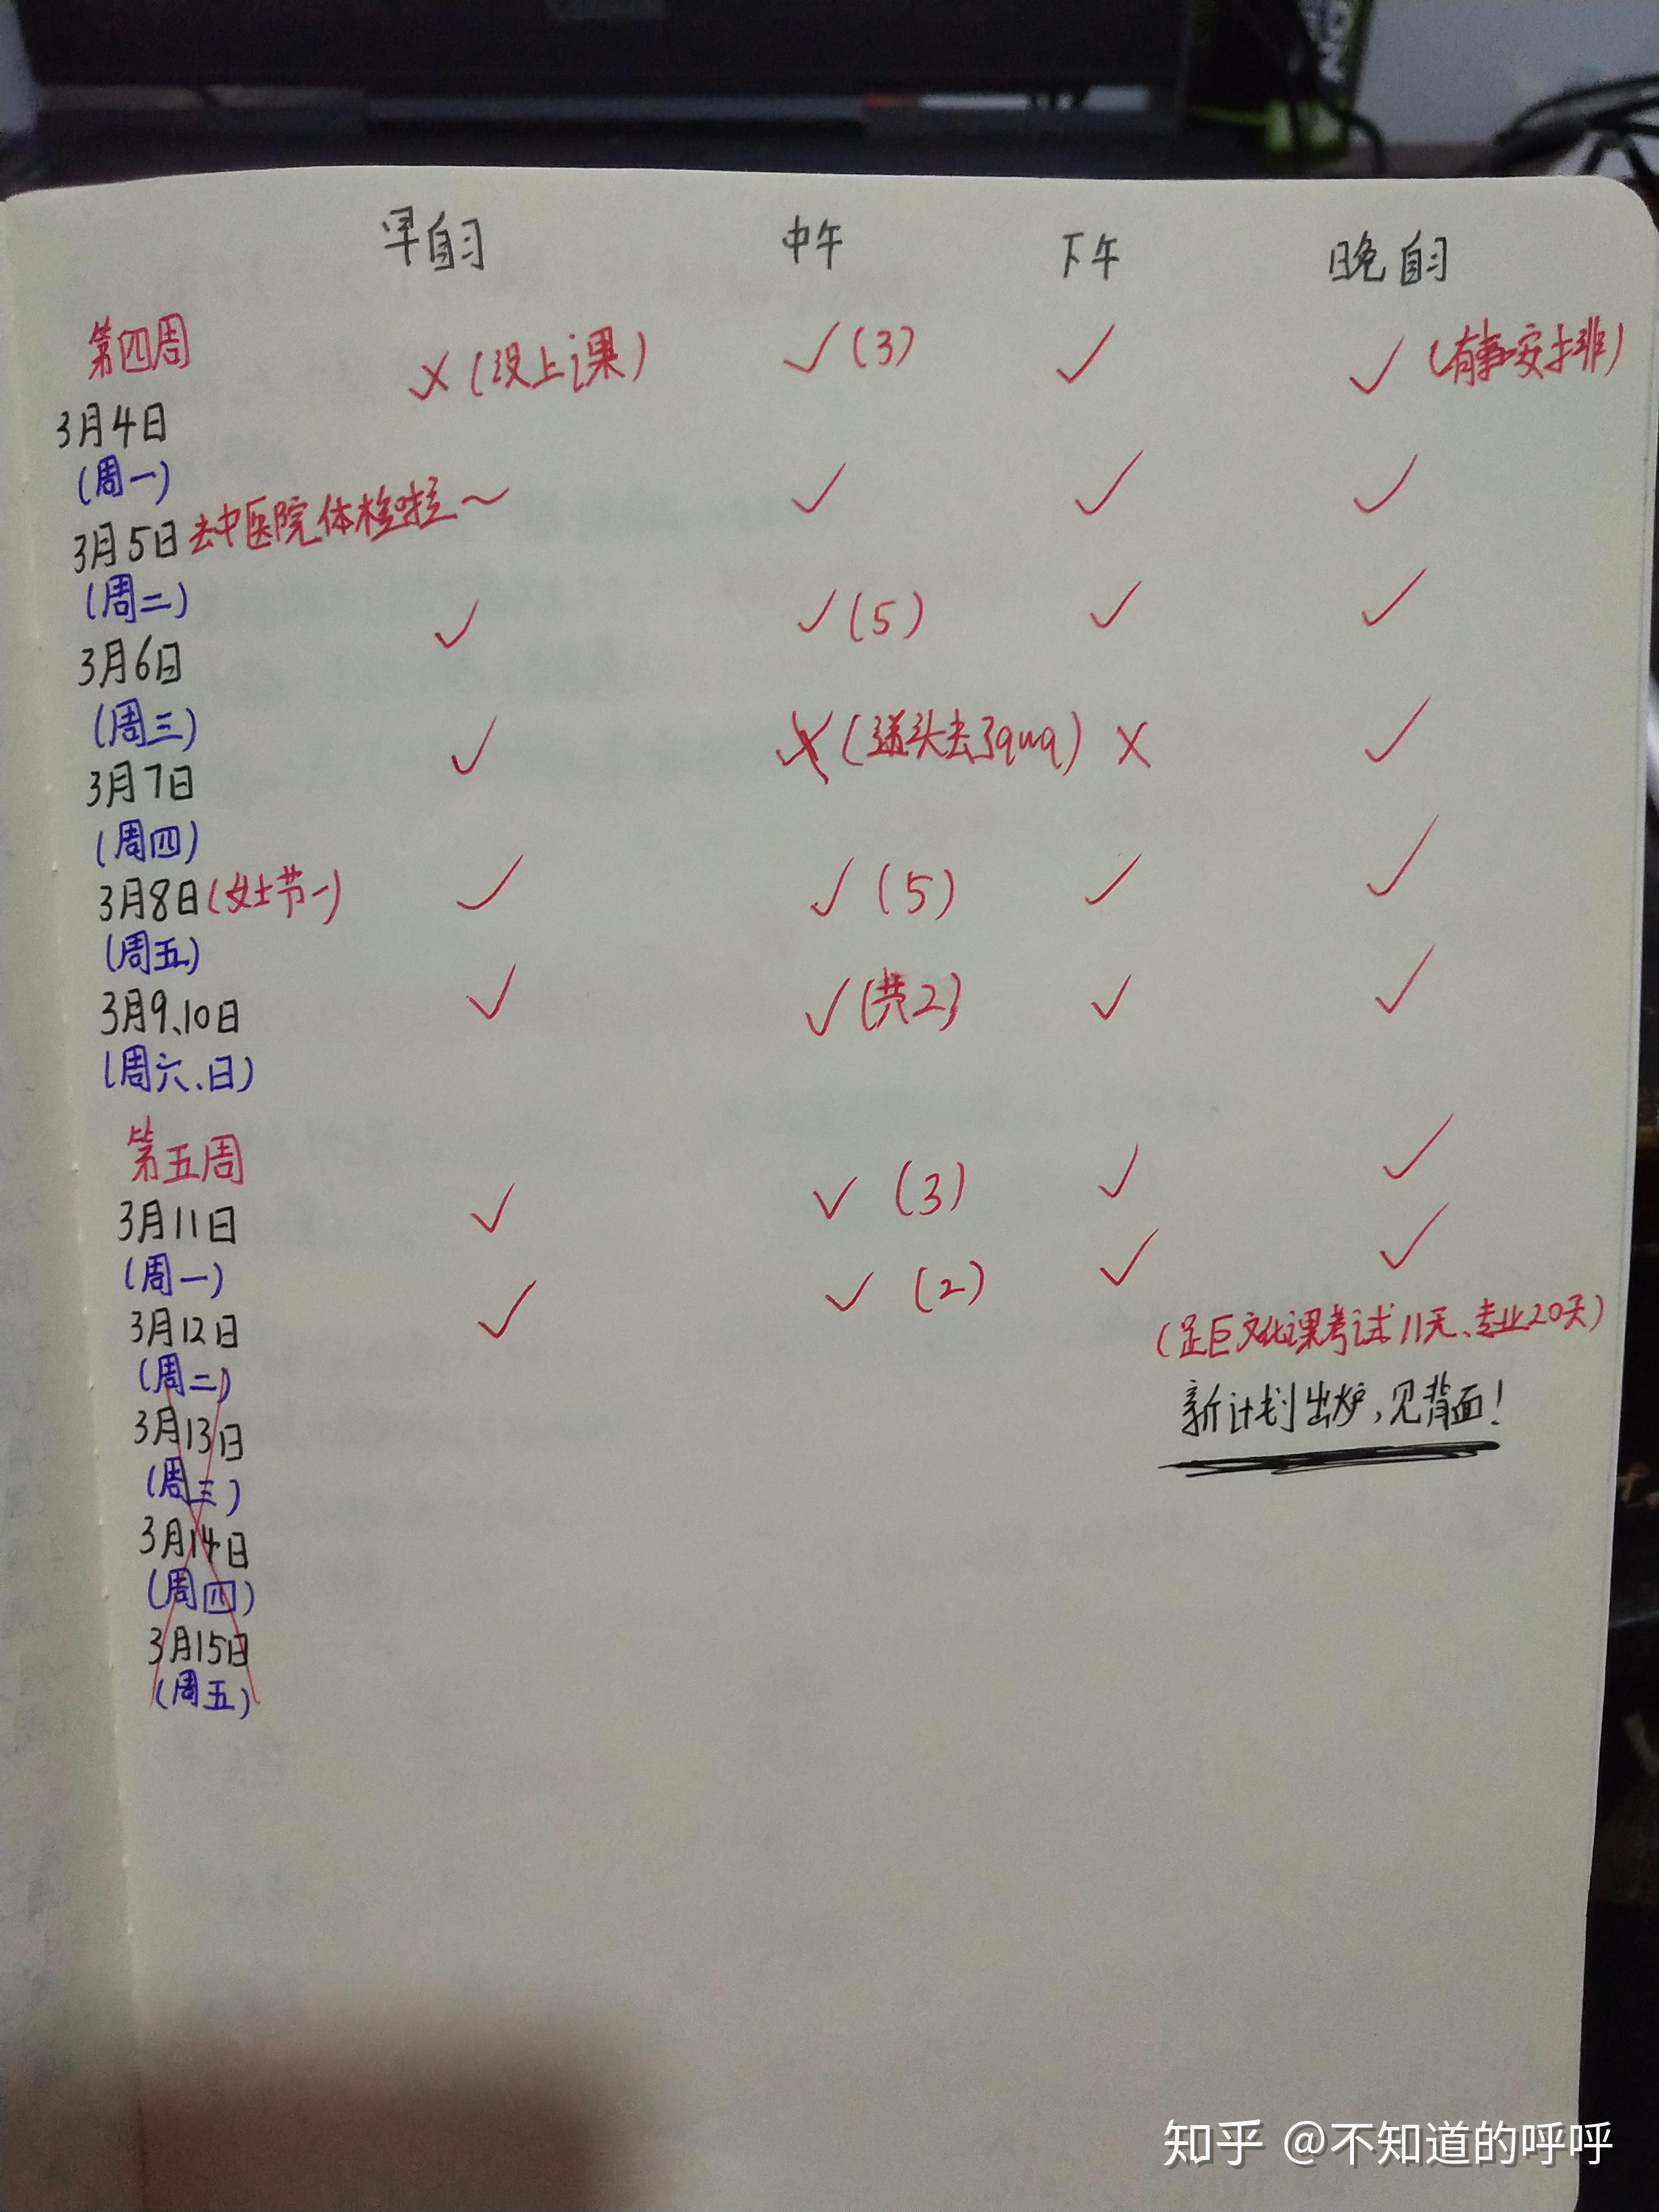 早自习 中午 下午 晚自习
第四周 ×(没上课) ✓(3) ✓ ✓(有事安排)
3月4日
(周一)
3月5日 去中医院体检啦~ ✓ ✓ ✓
(周二)
3月6日 ✓ ✓(5) ✓ ✓
(周三)
3月7日 ✓ ×(道头去了quq) × ✓
(周四)
3月8日(女士节一) ✓ ✓(5) ✓ ✓
(周五)
3月9、10日 ✓ ✓(共2) ✓ ✓
(周六、日)
第五周
3月11日 ✓ ✓(3) ✓ ✓
(周一)
3月12日 ✓ ✓(2) ✓ ✓
(周二)
(足巨文化课考试11天、专业20天)
新计划出炉,见背面!
3月13日
(周三)
3月14日
(周四)
3月15日
(周五)
知乎 @不知道的呼呼